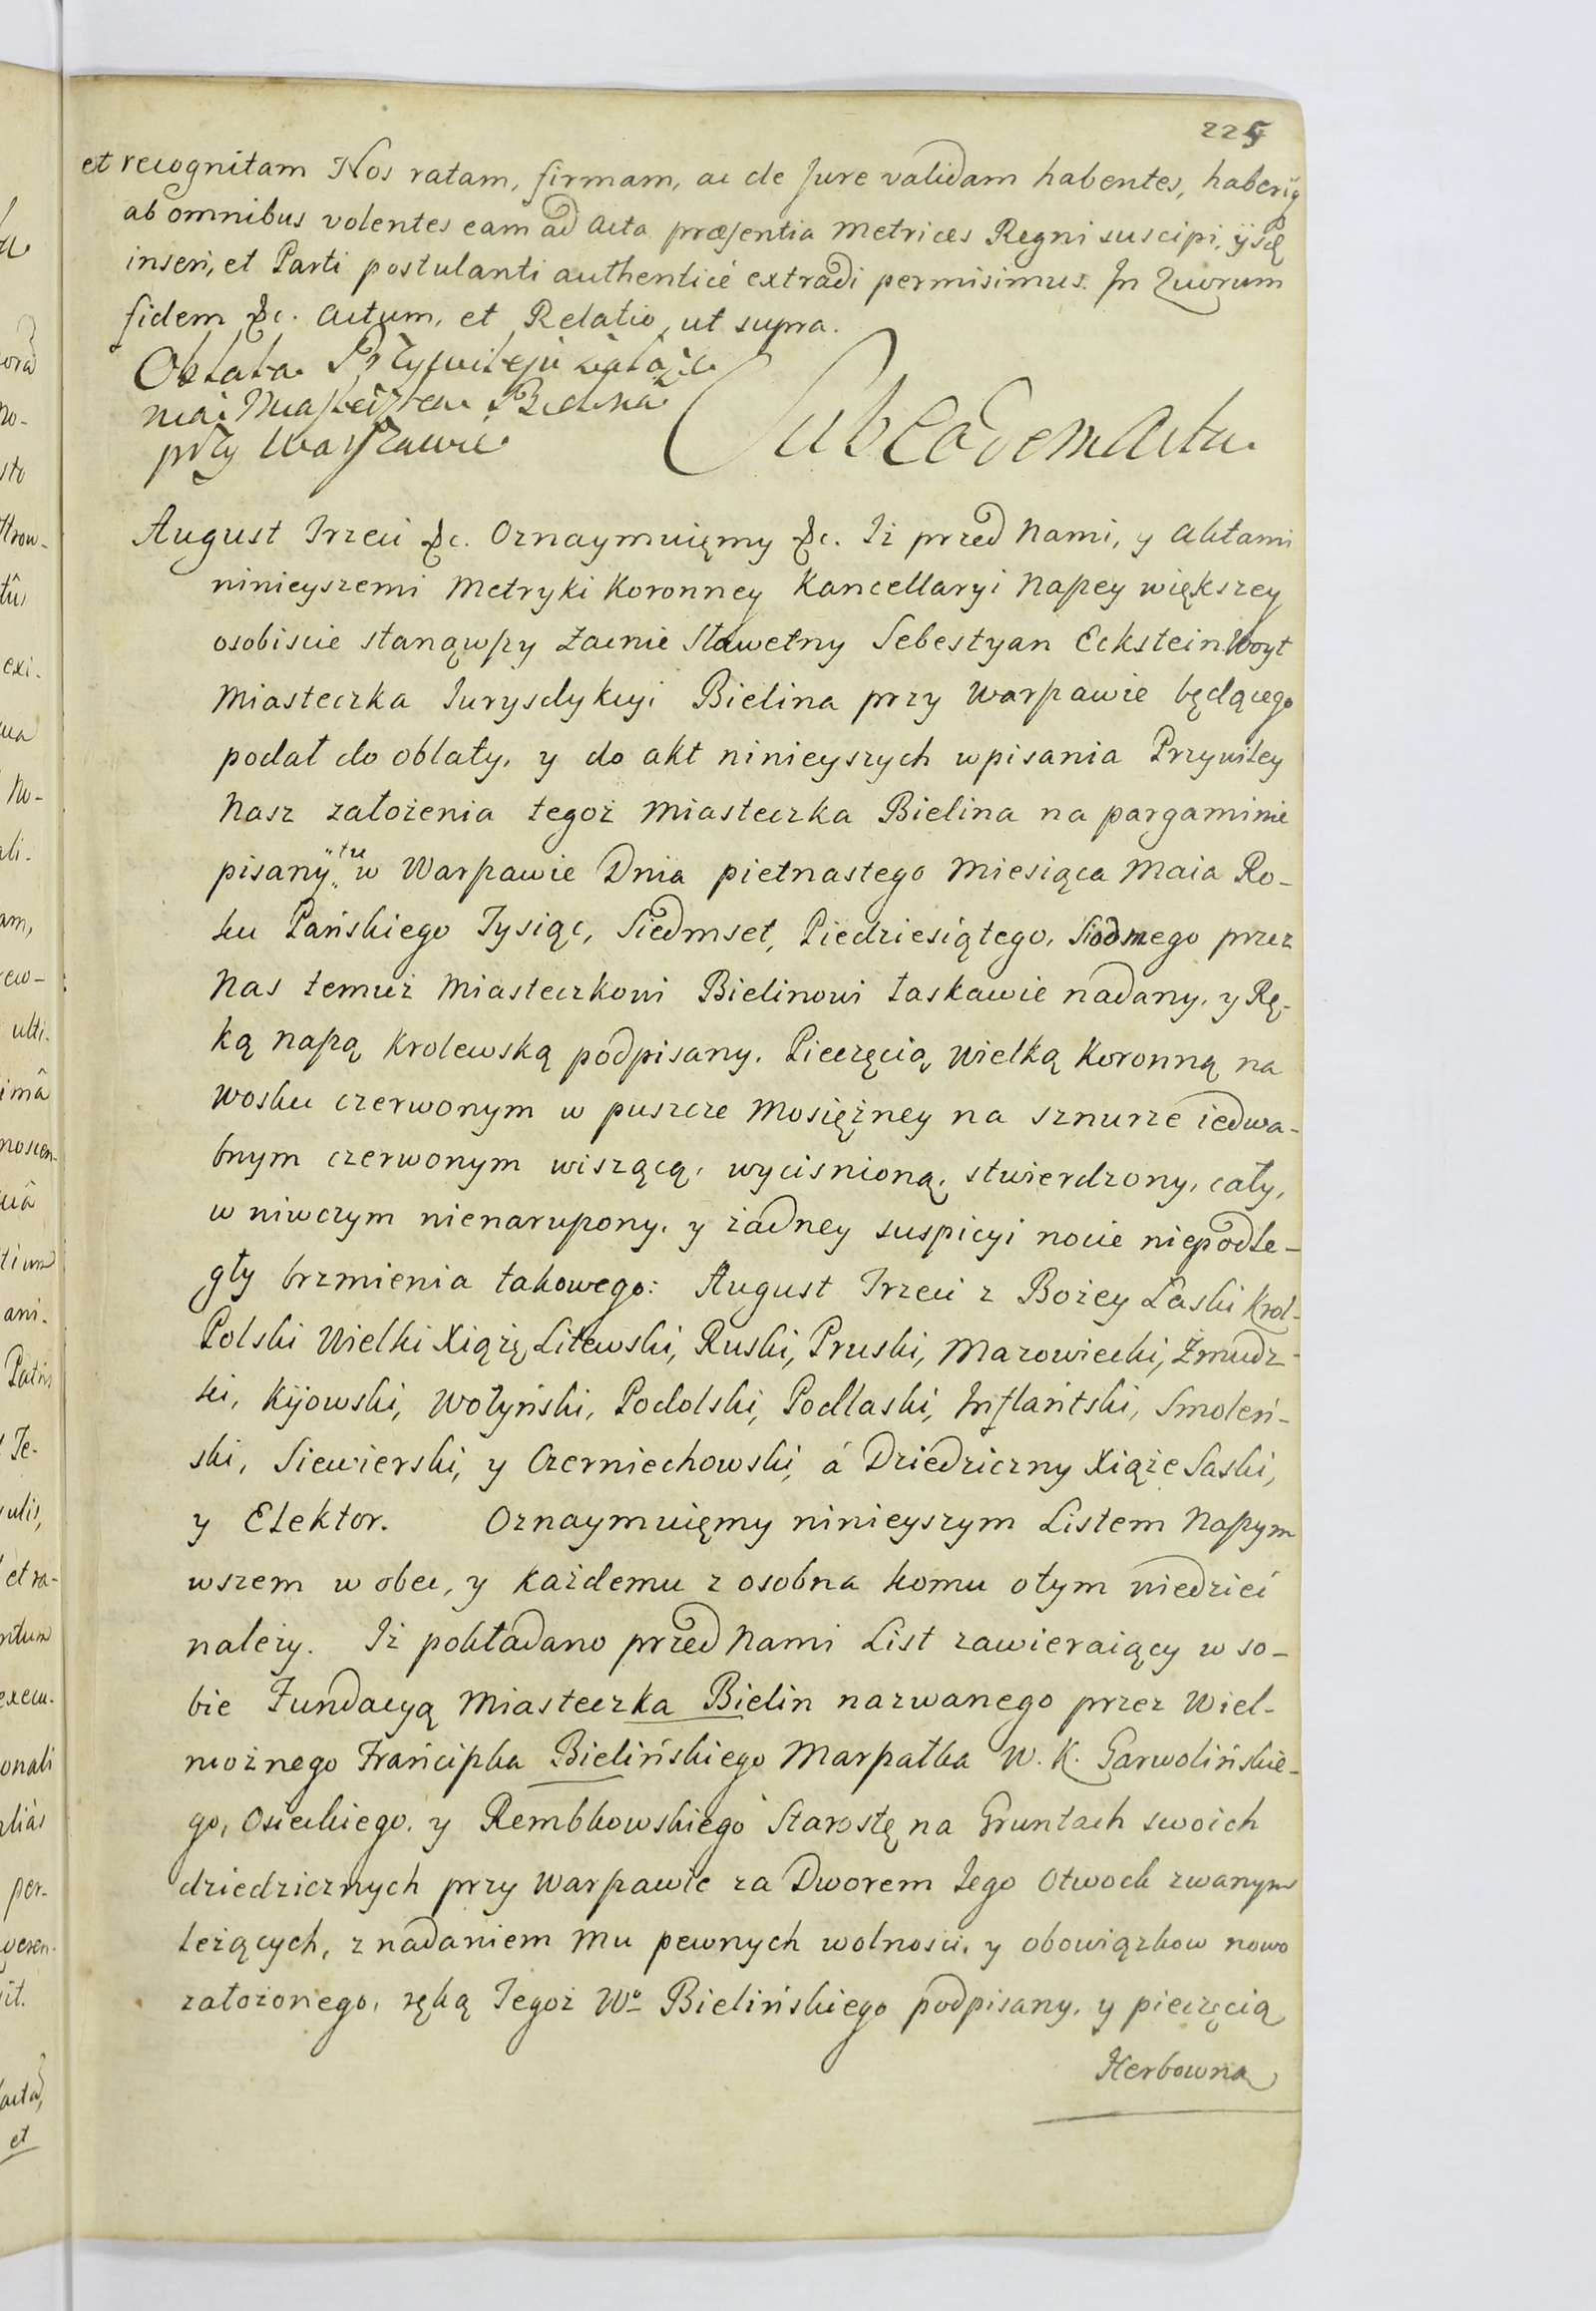 225
et recognitam Nos ratam, firmam, ac de Jure validam habentes, haberiq
ab omnibus volentes eam ad Acta præsentia Metrices Regni suscipi, ijsq
inseri, et Parti postulanti authenticè extradi permisimus. In Quorum
fidem &c. Actum, et Relatio, ut supra.
Oblata Przywileju założe
nia Miasteczka Bielina
przy Warszawie
Sub eodem Actu
August Trzeci &c. Oznaymuięmy &c. Iż przed Nami, y Aktami
ninieyszemi Metryki Koronney Kancellaryi Naszey większey
osobiscie stanąwszy Zacnie Sławetny Sebestyan Eckstein Woyt
Miasteczka Jurysdykcyi Bielina przy Warszawie będącego
podał do oblaty, y do akt ninieyszych wpisania Przywiley
Nasz założenia tegoż Miasteczka Bielina na pargaminie
pisany tu w Warszawie Dnia pietnastego Miesiąca Maia Ro-
ku Pańskiego Tysiąc, Siedmset, Piedziesiątego, Siodmego przez
Nas temuż Miasteczkowi Bielinowi łaskawie nadany, y Rę-
ką naszą Krolewską podpisany, Pieczęcią Wielką Koronną na
wosku czerwonym w puszcze Mosiężney na sznurze iedwa-
bnym czerwonym wiszącą, wycisnioną, stwierdzony, cały,
w niwczym nienaruszony, y żadney suspicyi nocie niepodle-
gły brzmienia takowego: August Trzeci z Bożey Łaski Krol-
Polski Wielki Xiążę Litewski, Ruski, Pruski, Mazowiecki, Żmudz-
ki, Kijowski, Wołyński, Podolski, Podlaski, Inflantski, Smoleń-
ski, Siewierski, y Czerniechowski, á Dziedziczny Xiąże Saski,
y Elektor. Oznaymuięmy ninieyszym Listem Naszym
wszem w obec, y każdemu z osobna komu otym wiedzieć
należy. Iż pokładano przed Nami List zawieraiący w so-
bie Fundacyą Miasteczka Bielin nazwanego przez Wiel-
możnego Franciszka Bielińskiego Marszałka W. K. Garwolińskie-
go, Osieckiego, y Rembkowskiego Starostę na Gruntach swoich
dziedzicznych przy Warszawie za Dworem Jego Otwock zwanym
leżących, z nadaniem Mu pewnych wolnosci, y obowiązkow nowo
założonego, ręką Tegoż Wo Bielińskiego podpisany, y pieczęcią
Herbowną